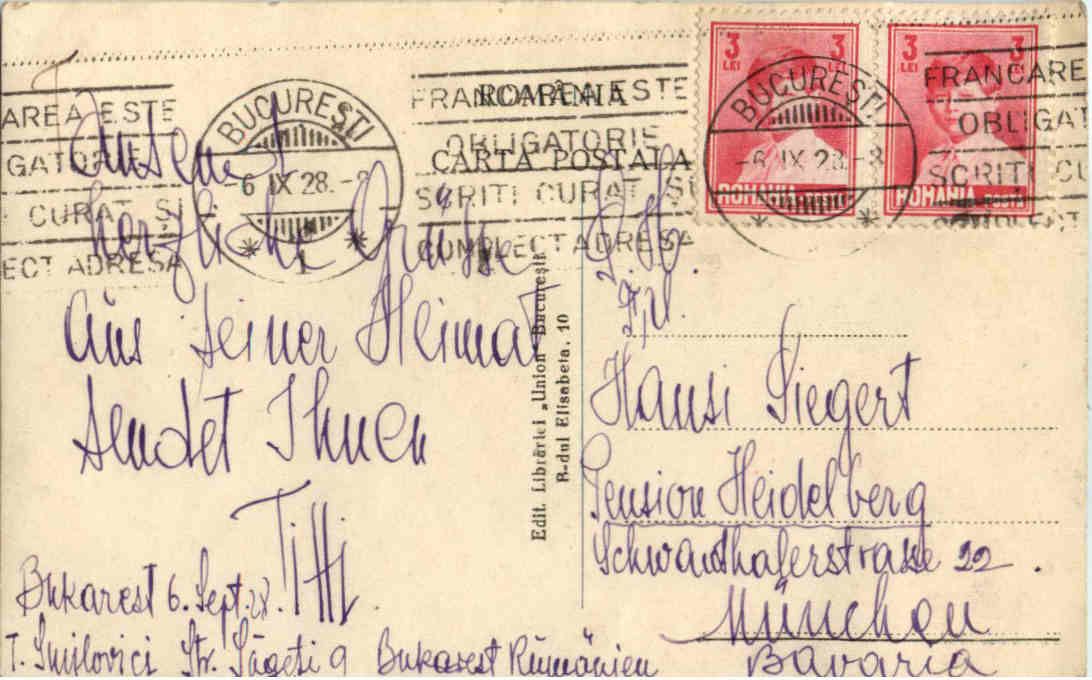 ROMÂNIA
CARTA POSTALA
BUCUREȘTI
-6 IX 28.-8
1
AREA ESTE
GATORIE
CURAT ȘI
ECT ADRESA
FRANCAREA ESTE
OBLIGATORIE
SCRITI CURAT ȘI
COMPLECT ADRESA
3 LEI 3 LEI
ROMANIA
3 LEI 3
ROMANIA
BUCUREȘTI
-6 IX 28.-8
FRANCARE
OBLIGAT
SCRITI CU
herzliche Grüsse
Aus seiner Heimat
sendet Ihnen
Titti
Bukarest 6. Sept. 28.
T. Smilovici Str. Săgeti 9 Bukarest Rumänien
Edit. Librăriei „Union" București
B-dul Elisabeta, 10
Hansi Siegert
Pension Heidelberg
Schwanthalerstrasse 22.
München
Bavaria